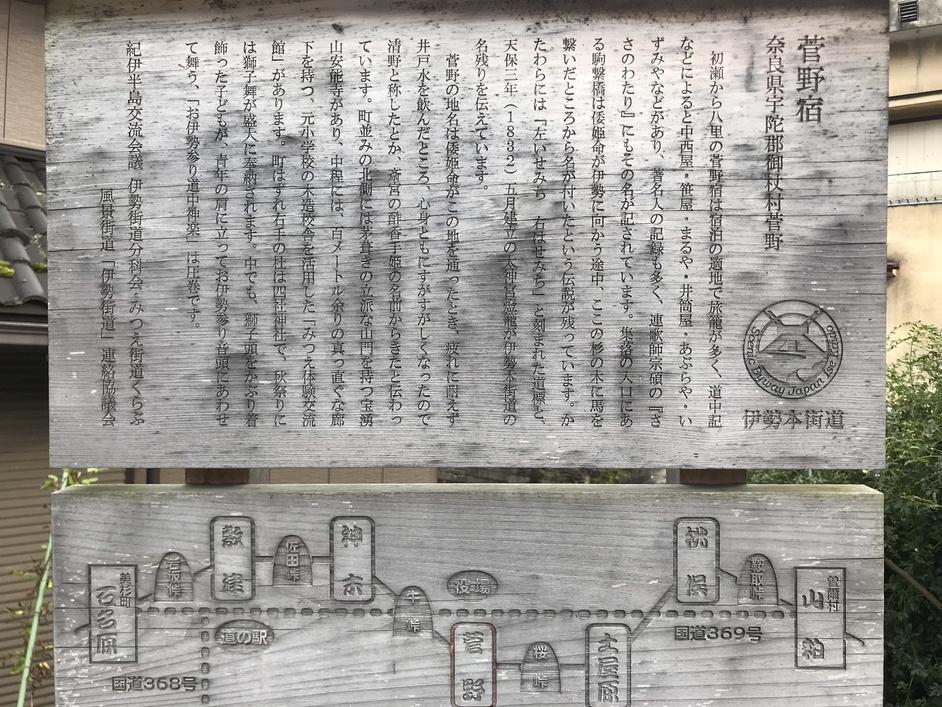 菅野宿
奈良県宇陀郡御杖村菅野
初瀬から八里の菅野宿は宿泊の適地で旅籠が多く、道中記
などによると中西屋・笹屋・まるや・井筒屋・あぶらや・い
ずみやなどがあり、著名人の記録も多く、連歌師宗碩の『さ
さのわたり』にもその名が記されています。集落の入口にあ
る駒繋橋は倭姫命が伊勢に向かう途中、ここの杉の木に馬を
繋いだところから名が付いたという伝説が残っています。か
たわらには「左いせみち 右はせみち」と刻まれた道標と、
天保三年(1832)五月建立の太神宮燈籠が伊勢本街道の
名残りを伝えています。
菅野の地名は倭姫命がこの地を通ったとき、疲れに耐えず
井戸水を飲んだところ、心身ともにすがすがしくなったので
清野と称したとか、斎宮の酢香手姫の名前からきたと伝わっ
ています。町並みの北側には茅葺きの立派な山門を持つ宝湧
山安能寺があり、中程には、百メートル余りの真っ直ぐな廊
下を持つ、元小学校の木造校舎を活用した「みつえ体験交流
館」があります。町はずれ右手の杜は四社神社で、秋祭りに
は獅子舞が盛大に奉納されます。中でも、獅子頭をかぶり着
飾った子どもが、青年の肩に立ってお伊勢参り音頭にあわせ
て舞う、「お伊勢参り道中神楽」は圧巻です。
紀伊半島交流会議 伊勢街道分科会・みつえ街道くらぶ
風景街道「伊勢街道」連絡協議会
Scenic Byway Japan Ise Kaido
伊勢本街道
美杉町
石名原
岩坂峠
敷津
佐田峠
神末
牛峠
役場
菅野
桜峠
土屋原
桃俣
鞍取峠
曽爾村
山粕
道の駅
国道368号
国道369号